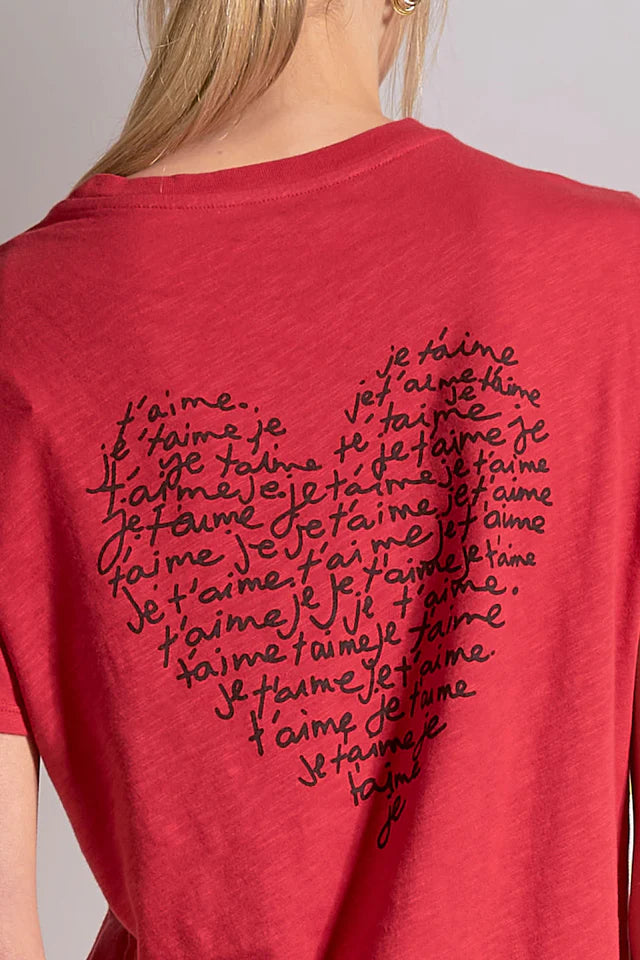 je t'aime
je t'aime t'aime
t'aime. je
je t'aime je t'aime
je t'aime te' je t'aime je
t'aime je. je t'aime je t'aime
je t'aime je t'aime je t'aime
t'aime je je t'aime je t'aime
je t'aime. t'aime je t'aime
t'aime je je je t'aime.
t'aime t'aime je t'aime
je t'aime je t'aime.
t'aime je t'aime
je t'aime je
t'aime
je